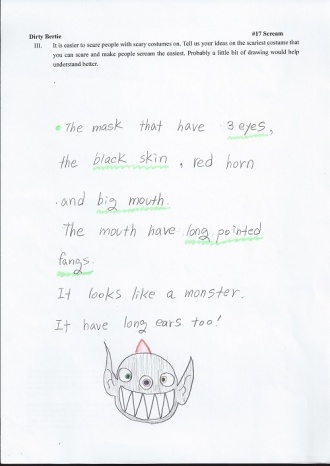 Dirty Bertie #17 Scream
III. It is easier to scare people with scary costumes on. Tell us your ideas on the scariest costume that
you can scare and make people scream the easiest. Probably a little bit of drawing would help
understand better.
The mask that have 3 eyes,
the black skin, red horn
and big mouth.
The mouth have long pointed
fangs.
It looks like a monster.
It have long ears too!